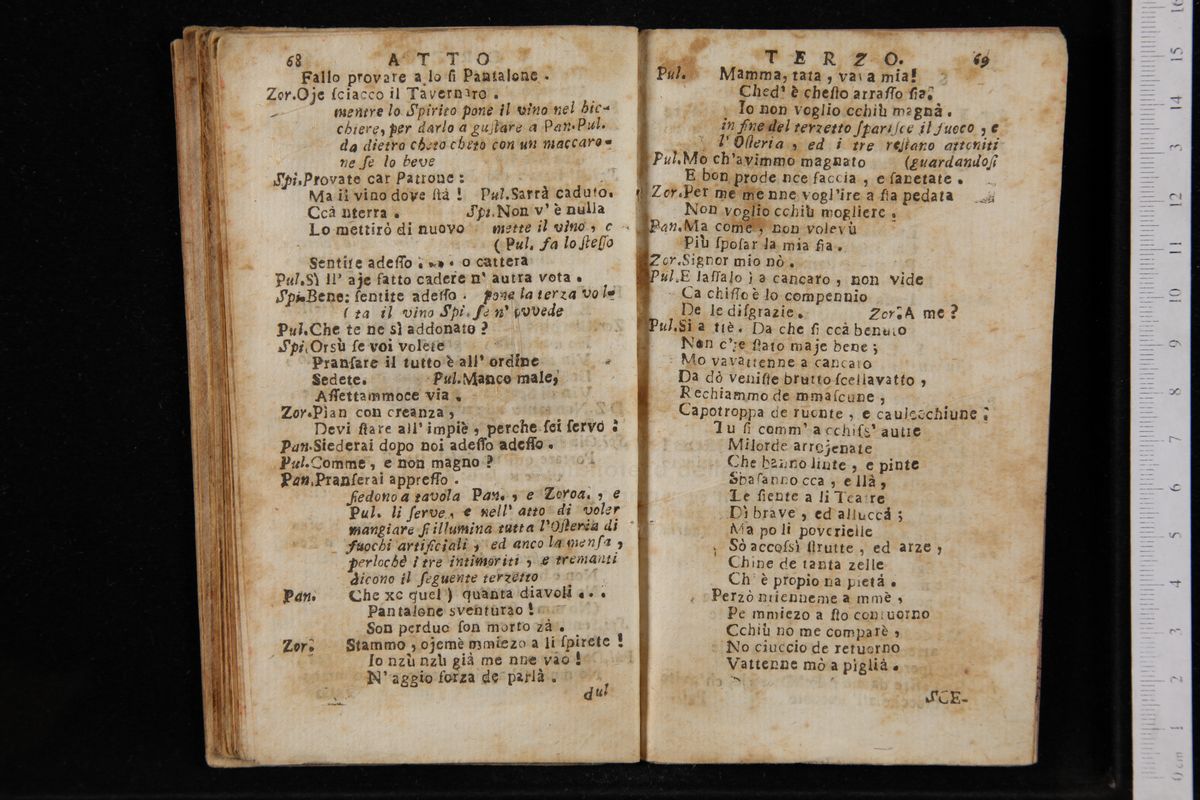 68 ATTO
Fallo provare a lo ſi Pantalone .
Zor.Oje ſciacco il Tavernaro .
mentre lo Spirito pone il vino nel bic-
chiere, per darlo a guſtare a Pan. Pul.
da dietro cheto cheto con un maccaro-
ne ſe lo beve
Spi.Provate car Patrone :
Ma il vino dove ſta ! Pul.Sarrà caduto.
Ccà nterra . Spi.Non v' è nulla
Lo mettirò di nuovo mette il vino , e
( Pul. fa lo ſteſſo
Sentite adeſſo . . . . o cattera
Pul.Sì ll' aje fatto cadere n' autra vota .
Spi.Bene: ſentite adeſſo . pone la terza vol-
( ta il vino Spi. ſe n' avvede
Pul.Che te ne sì addonato ?
Spi.Orsù ſe voi volete
Pranſare il tutto è all' ordine
Sedete. Pul.Manco male,
Aſſettammoce via .
Zor.Pian con creanza ,
Devi ſtare all' impiè , perche ſei ſervo :
Pan.Siederai dopo noi adeſſo adeſſo .
Pul.Comme , e non magno ?
Pan.Pranſerai appreſſo .
ſiedono a tavola Pan. , e Zoroa. , e
Pul. li ſerve , e nell' atto di voler
mangiare ſi illumina tutta l'Oſteria di
fuochi artificiali , ed anco la menſa ,
perlochè i tre intimoriti , e tremanti
dicono il ſeguente terzetto
Pan. Che xe quel ) quanta diavoli . . .
Pantalone sventurao !
Son perduo ſon morto zà .
Zor. Stammo , ojemè mmiezo a li ſpirete !
Io nzù nzù già me nne vao !
N' aggio forza de parlà .
dul
TERZO. 69
Pul. Mamma, tata , vava mia!
Ched' è cheſto arraſſo ſia.
Io non voglio cchiù magnà .
in fine del terzetto ſpariſce il fuoco , e
l' Oſteria , ed i tre reſtano attoniti
Pul.Mo ch'avimmo magnato (guardandoſi
E bon prode nce faccia , e ſanetate .
Zor.Per me me nne vogl'ire a ſta pedata
Non voglio cchiù mogliere .
Pan.Ma come , non volevù
Più ſpoſar la mia fia .
Zor.Signor mio nò .
Pul.E laſſalo ì a cancaro , non vide
Ca chiſſo è lo compennio
De le diſgrazie. Zor.A me ?
Pul.Si a ttè. Da che ſi ccà benuto
Non c'je ſtato maje bene ;
Mo vavattenne a cancaro
Da dò veniſte brutto ſcellavatto ,
Rechiammo de mmaſcune ,
Capotroppa de ruonte , e caulecchiune :
Tu ſi comm' a cchiſs' autre
Milorde arrojenate
Che banno linte , e pinte
Sbaſanno cca , e llà ,
Te ſiente a li Teatre
Dì brave , ed alluccà ;
Ma po li poverielle
Sò accoſsì ſtrutte , ed arze ,
Chine de tanta zelle
Ch' è propio na pietà .
Perzò ntienneme a mmè ,
Pe mmiezo a ſto contuorno
Cchiù no me comparè ,
No ciuccio de retuorno
Vattenne mò a piglià .
SCE-